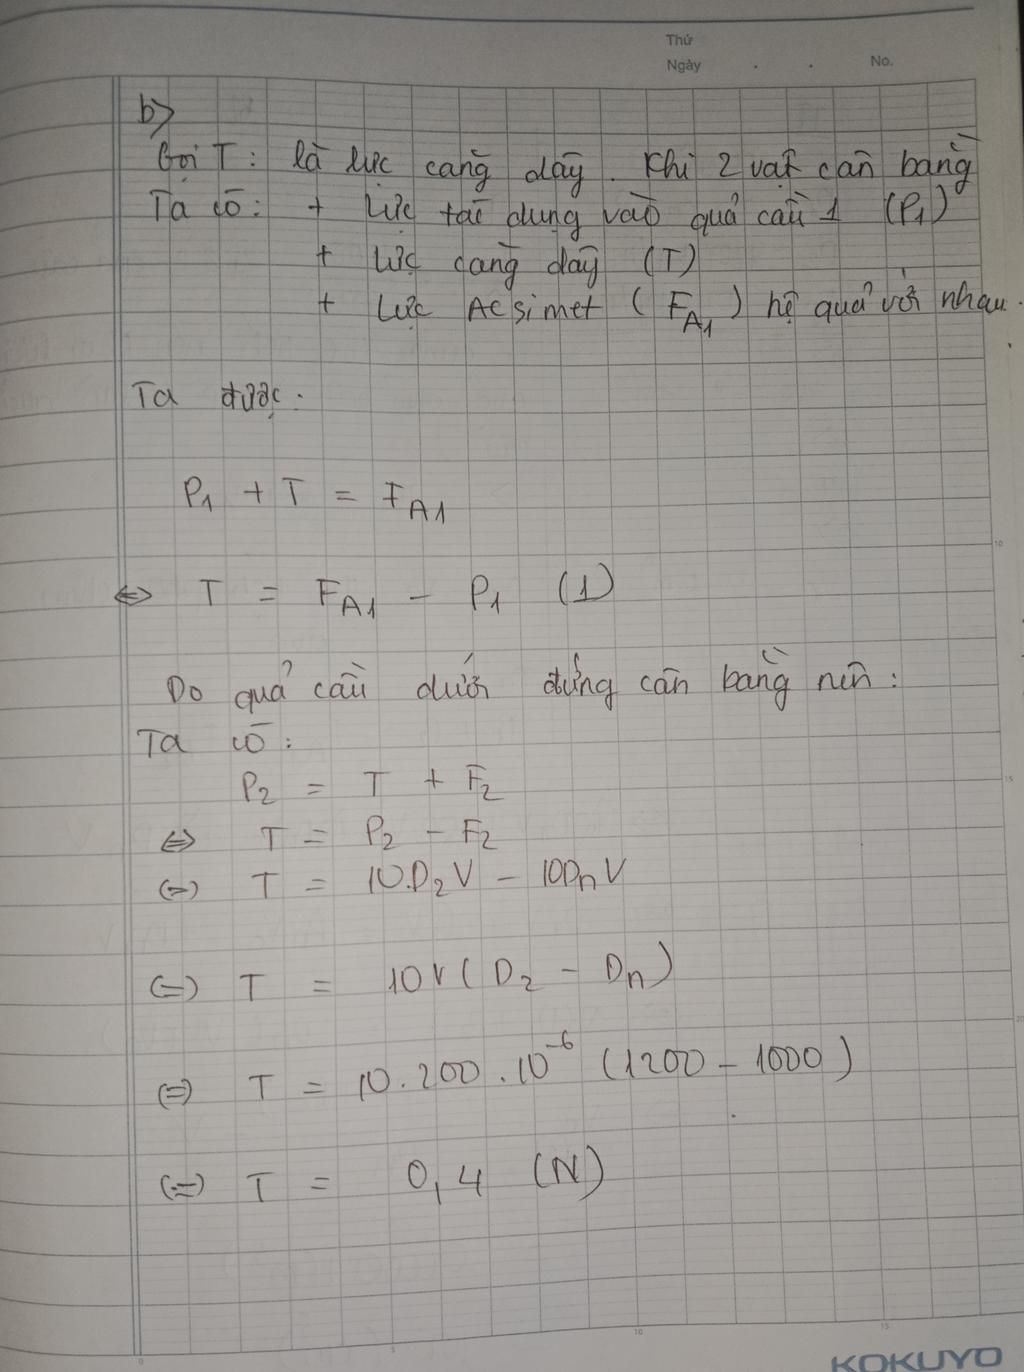 Thứ
Ngày . . No.
b)
Gọi T: là lực căng dây. Khi 2 vật cân bằng
Ta có: + Lực tác dụng vào quả cầu 1 (P₁)
+ Lực căng dây (T)
+ Lực Acsimet (F_A1) hệ quả với nhau.
Ta được:
P₁ + T = F_A1
⇔ T = F_A1 - P₁ (1)
10
Do quả cầu dưới đứng cân bằng nên:
Ta có:
P₂ = T + F₂
15
⇔ T = P₂ - F₂
(=) T = 10.D₂V - 10DnV
(=) T = 10V(D₂ - Dn)
20
(=) T = 10.200.10⁻⁶ (1200 - 1000)
(=) T = 0,4 (N)
0 5 10 15
KOKUYO